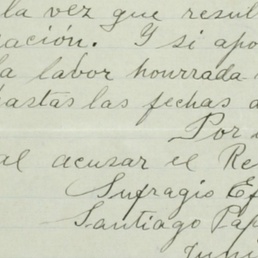 la vez que resul
ación. Y si apo
la labor hourrada
hastas las fechas d
Por
al acusar el Re
Sufragio Ef
Santiago Pap
Juni